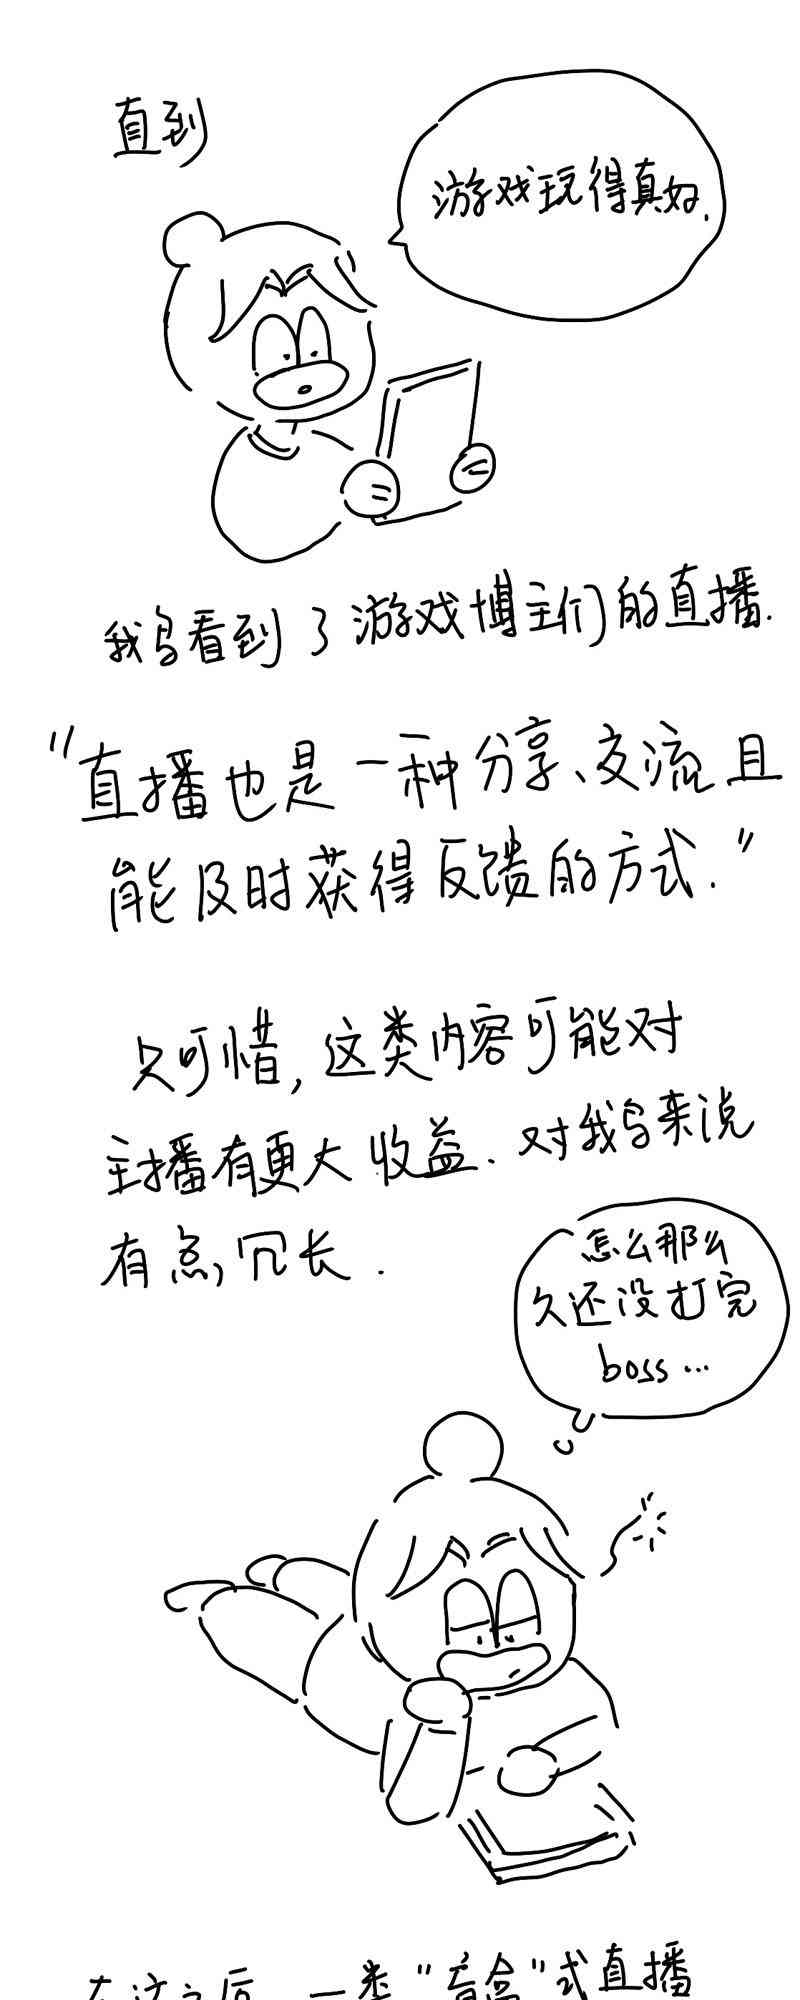 直到
游戏玩得真好.
我鸟看到了游戏博主们的直播.
"直播也是一种分享、交流且
能及时获得反馈的方式."
只可惜,这类内容可能对
主播有更大收益.对我鸟来说
有点冗长.
怎么那么
久还没打完
boss...
在这之后 一类"盲盒"式直播